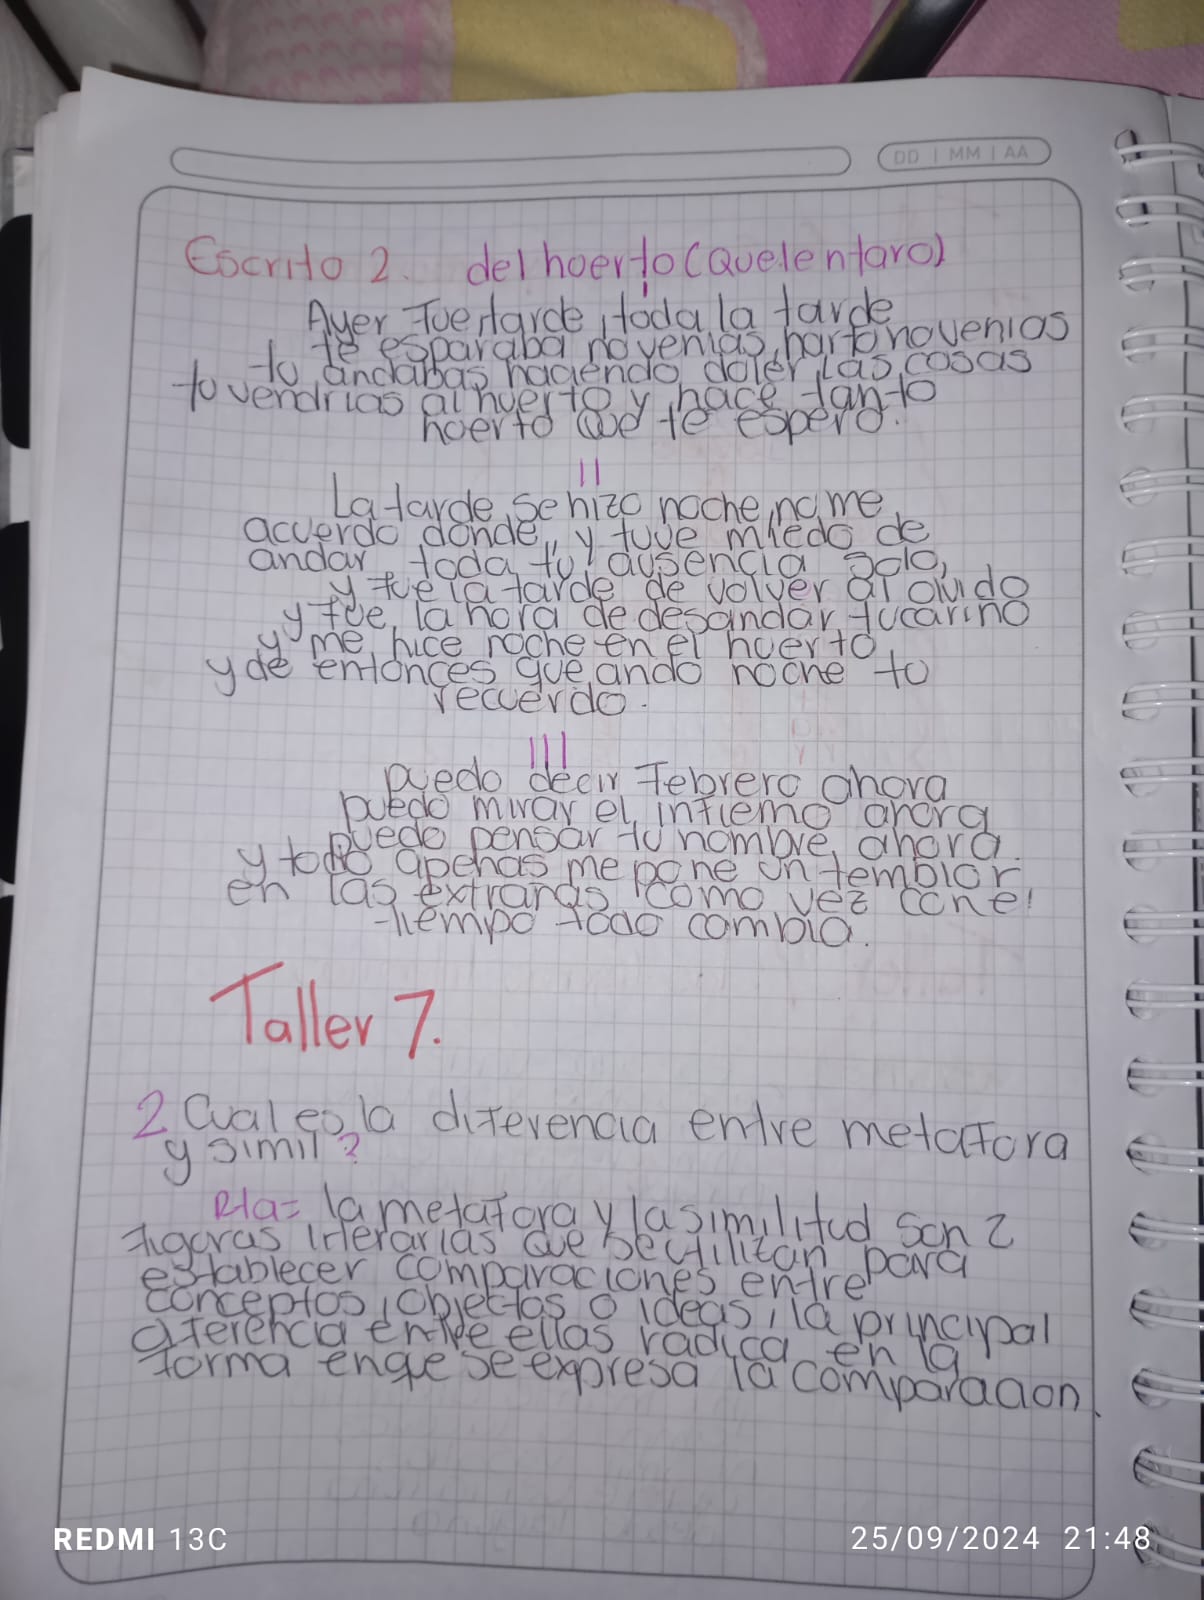 DD | MM | AA
Escrito 2. del huerto (Quelentaro)
I
Ayer fue tarde, toda la tarde
te esparaba no venias, harto no venias
tu, andabas haciendo doler las cosas
tu vendrias al huerto y hace tanto
huerto que te espero.
II
La tarde se hizo noche, no me
acuerdo donde, y tuve miedo de
andar toda tu ausencia solo,
y fue la tarde de volver al olvido
y fue la hora de desandar tu cariño
y me hice noche en el huerto
y de entonces que ando noche tu
recuerdo.
III
puedo decir Febrero ahora
puedo mirar el infierno ahora
puedo pensar tu nombre ahora.
y todo apenas me pone un temblor
en las extrañas como vez con el
tiempo todo cambia.
Taller 7.
2 Cual es la diferencia entre metafora
y simil?
Rta= la metafora y la similitud son 2
figuras literarias que se utilitan para
establecer comparaciones entre
conceptos, objectos o ideas, la principal
diferencia entre ellas radica en la
forma en que se expresa la comparacion.
REDMI 13C
25/09/2024 21:48